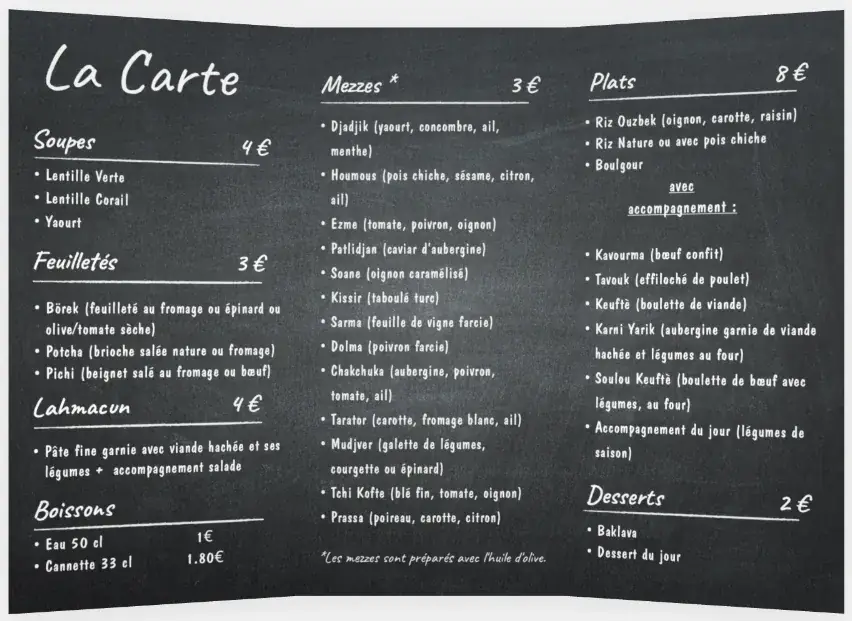 La Carte
Soupes 4 €
• Lentille Verte
• Lentille Corail
• Yaourt
Feuilletés 3 €
• Börek (feuilleté au fromage ou épinard ou
olive/tomate sèche)
• Potcha (brioche salée nature ou fromage)
• Pichi (beignet salé au fromage ou bœuf)
Lahmacun 4 €
• Pâte fine garnie avec viande hachée et ses
légumes + accompagnement salade
Boissons
• Eau 50 cl 1€
• Cannette 33 cl 1.80€
Mezzes * 3 €
• Djadjik (yaourt, concombre, ail,
menthe)
• Houmous (pois chiche, sésame, citron,
ail)
• Ezme (tomate, poivron, oignon)
• Patlidjan (caviar d'aubergine)
• Soane (oignon caramélisé)
• Kissir (taboulé turc)
• Sarma (feuille de vigne farcie)
• Dolma (poivron farcie)
• Chakchuka (aubergine, poivron,
tomate, ail)
• Tarator (carotte, fromage blanc, ail)
• Mudjver (galette de légumes,
courgette ou épinard)
• Tchi Kofte (blé fin, tomate, oignon)
• Prassa (poireau, carotte, citron)
*Les mezzes sont préparés avec l'huile d'olive.
Plats 8 €
• Riz Ouzbek (oignon, carotte, raisin)
• Riz Nature ou avec pois chiche
• Boulgour
avec
accompagnement :
• Kavourma (bœuf confit)
• Tavouk (effiloché de poulet)
• Keuftè (boulette de viande)
• Karni Yarik (aubergine garnie de viande
hachée et légumes au four)
• Soulou Keuftè (boulette de bœuf avec
légumes, au four)
• Accompagnement du jour (légumes de
saison)
Desserts 2 €
• Baklava
• Dessert du jour